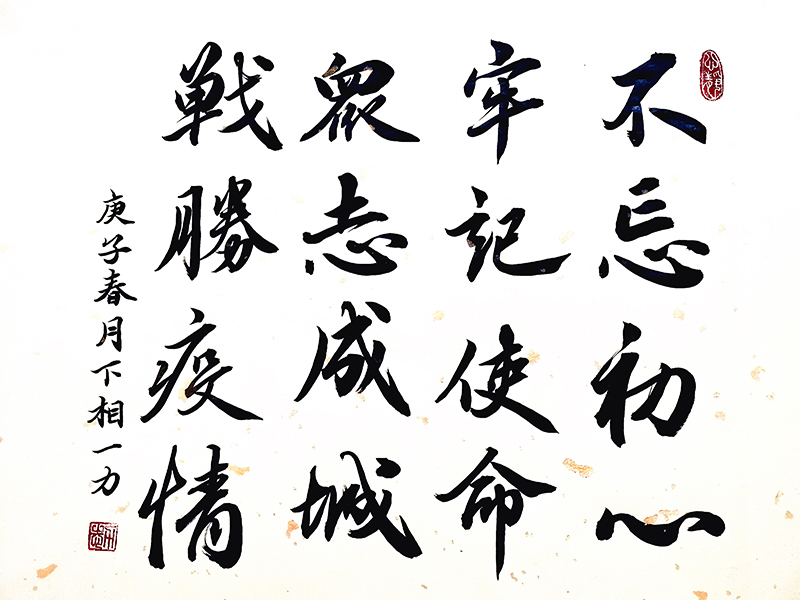 不忘初心
牢记使命
眾志成城
戰勝疫情
庚子春月下相一力